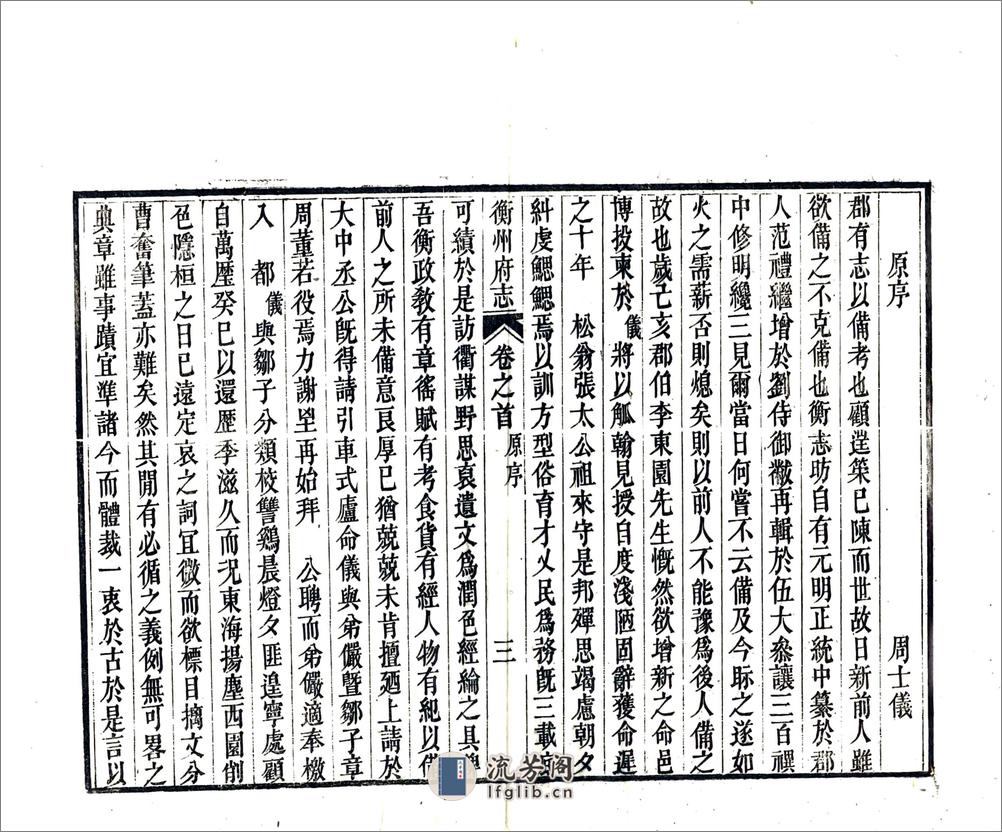 原序 周士儀
郡有志以備考也顧蓬築已陳而世故日新前人雖
欲備之不克備也衡志昉自有元明正統中纂於郡
人范禮繼增於劉侍御黻再輯於伍大叅讓三百禩
中修明纔三見爾當日何嘗不云備及今眎之遂如
火之需薪否則熄矣則以前人不能豫爲後人備之
故也歲亡亥郡伯李東園先生慨然欲增新之命邑
博投柬於儀將以觚翰見授自度淺陋固辭獲命遲
之十年 松翁張太公祖來守是邦殫思竭慮朝夕
糾虔鰓鰓焉以訓方型俗育才乂民爲務旣三載
衡州府志 卷之首 原序 三
可績於是訪衢謀野思裒遺文爲潤色經綸之具
吾衡政敎有章徭賦有考食貨有經人物有紀以備
前人之所未備意良厚已猶兢兢未肯擅廼上請於
大中丞公旣得請引車式廬命儀與弟儼暨鄒子章
周董若役焉力謝㞷再始拜 公聘而弟儼適奉檄
入 都儀與鄒子分類校讐鷄晨燈夕匪遑寧處顧
自萬曆癸巳以還歷季滋久而况東海揚塵西園削
色隱桓之日已遠定哀之詞宜微而欲標目摛文分
曹奮筆蓋亦難矣然其閒有必循之義例無可畧之
典章雖事蹟宜準諸今而體裁一衷於古於是言以
流芳阁
lfglib.cn